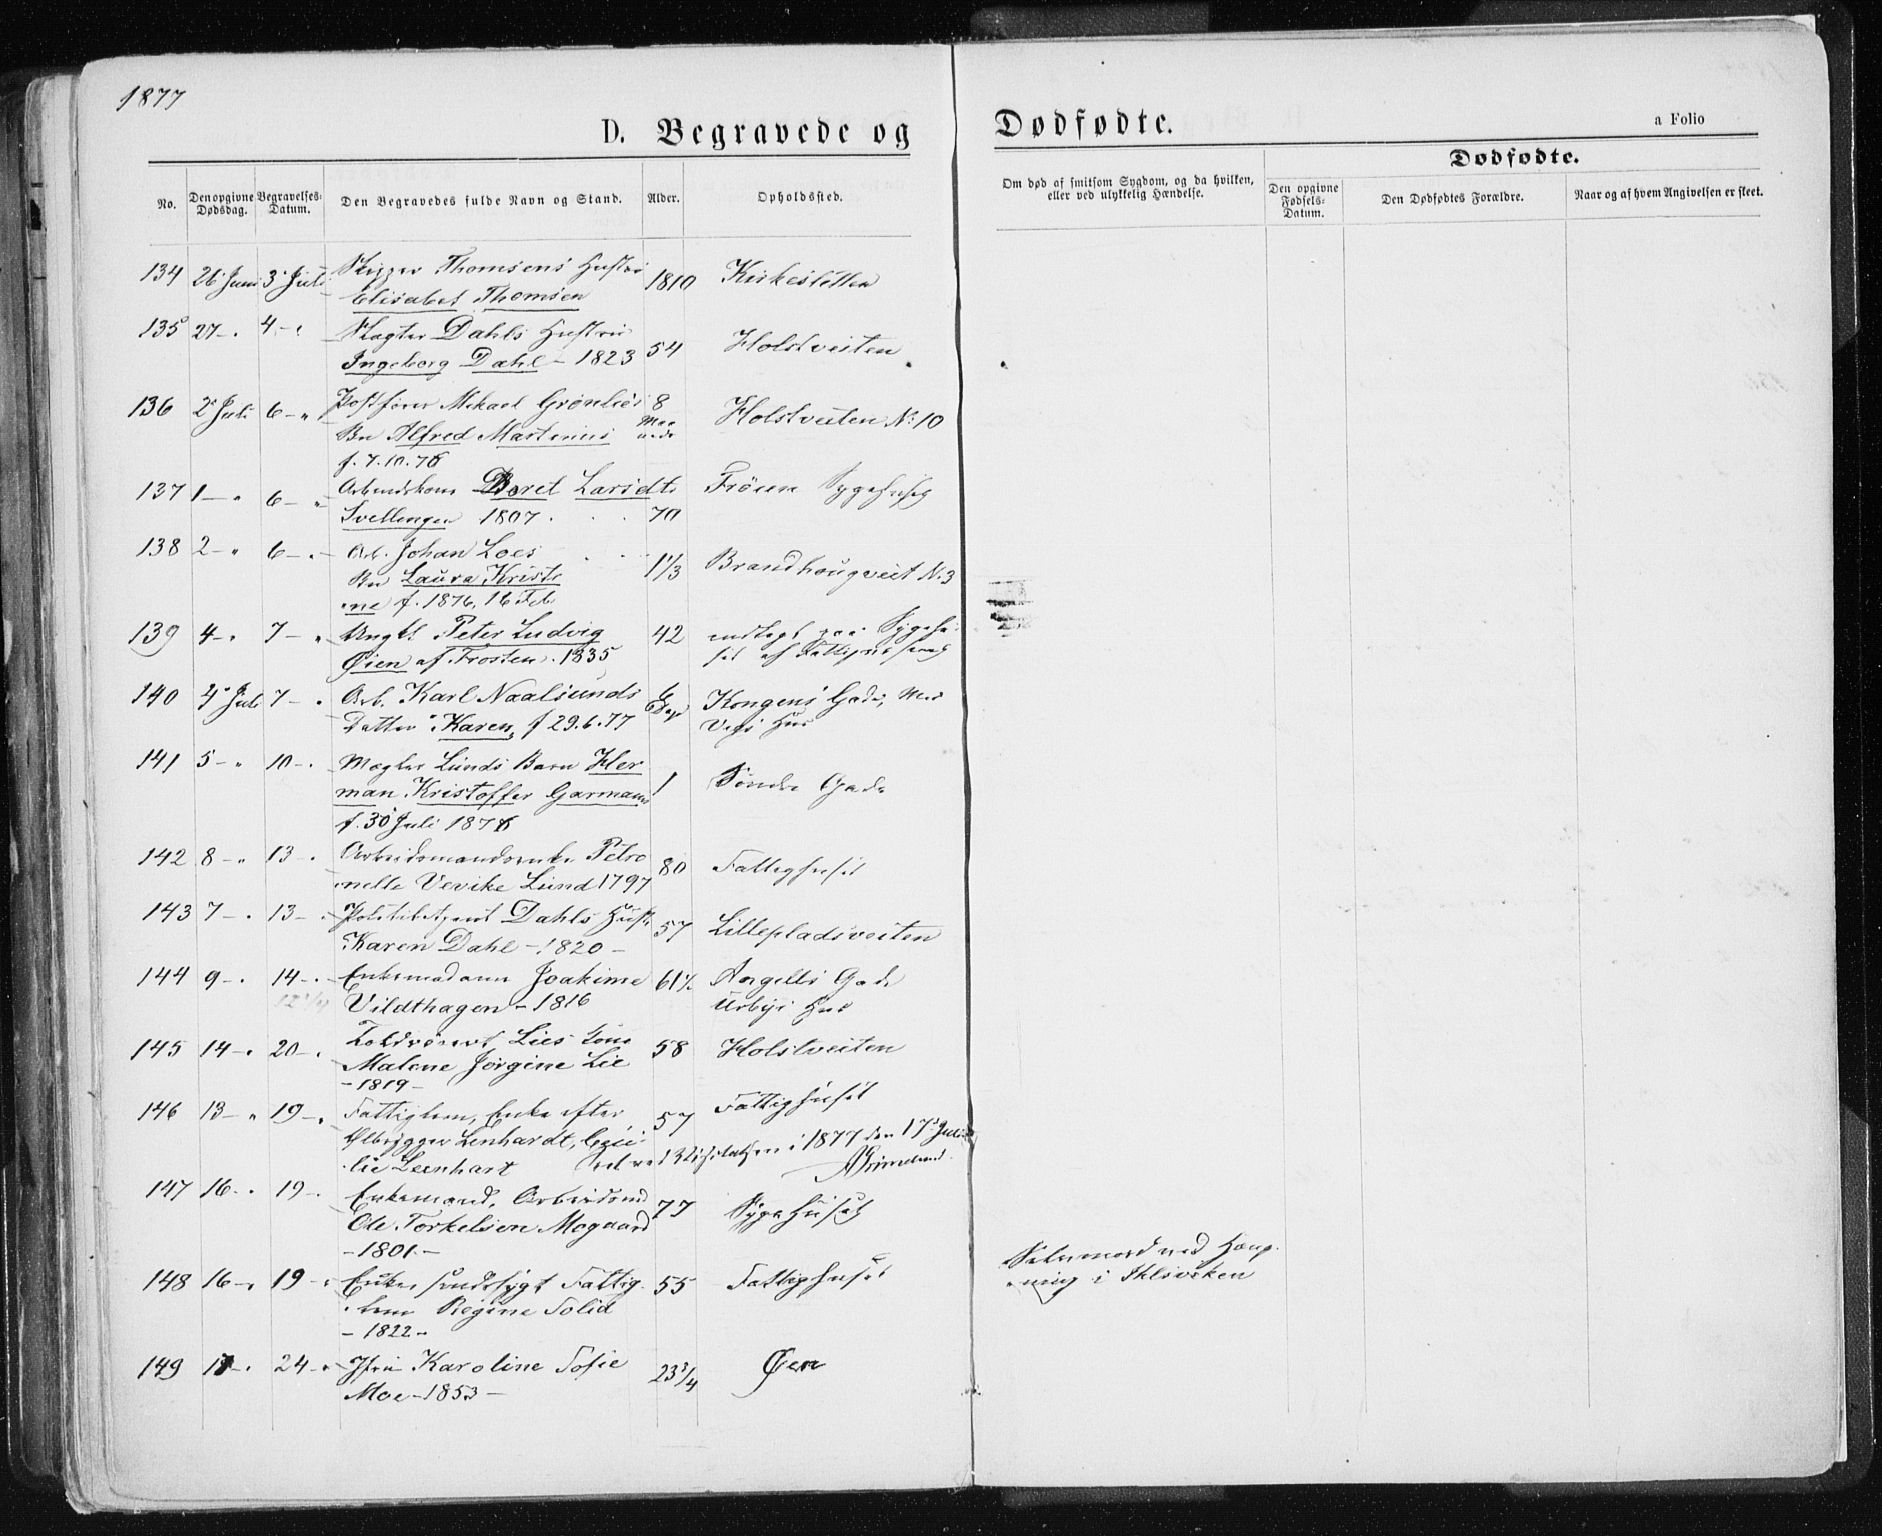 1877
D. Begravede og Dødfødte.
a Folio
Dødfødte.
No. Den opgivne Dødsdag. Begravelses-Datum. Den Begravedes fulde Navn og Stand. Alder. Opholdssted.
Om død af smitsom Sygdom, og da hvilken, eller ved ulykkelig Hændelse. Den opgivne Fødsels-Datum. Den Dødfødtes Forældre. Naar og af hvem Angivelsen er skeet.
134 26 Juni 3 Juli Skipper Thomsens Hustru 1810 Kirkestetten
Elisabet Thomsen
135 27 - " 4 - " Slagter Dahls Hustru 54 Holstveiten
Ingeborg Dahl - 1823
136 2 Juli 6 - " Postfører Mikael Grønlies 8 Maaneder Holstveiten No 10
Bn Alfred Martinius
f. 7.10.76
137 1 - " 6 - " Beret Larsdtr Frøien Sygehuset
Svellingen 1807 . . . 70
138 2 - " 6 - " Arb. Johan Loes 1 1/3 Brandhougveit N. 3
Bn Laura Kristi
ne f. 1876, 16 Feb
139 4 - " 7 - " Ungkl Peter Ludvig 42 indlagt paa Sygehu-
Øien af Frosten. 1835 set af Fattigvæsenet
140 4 Juli 7 - " Arb. Karl Naalsunds 6 Dage Kongens Gade,
Datter Karen, f 29.6.77 Hus
141 5 - " 10 - " Mægler Lunds Barn Her 1 Søndre Gade
man Kristoffer Garmann
f. 30 Juli 1876
142 8 - " 13 - " Arbeidsmandsenke Petro 80 Fattighuset
nelle Vevike Lund 1797
143 7 - " 13 - " Politibetjent Dahls Hustr 57 Lillepladsveiten
Karen Dahl - 1820 -
144 9 - " 14 - " Enkemadam Joakime 61 1/2 Angells Gade
Vildthagen - 1816 Hus
145 14 - " 20 - " Lies Kone 58 Holstveiten
Malene Jørgine Lie
- 1819 -
146 13 - " 19 - " Fattiglem, Enke efter 57 Fattighuset
Ølbrygger Lenhardt, Ceci
lie Leenhart Seet ved Visitatsen i 1877 den 17 Juli
AGrimelund.
147 16 - " 19 - " Enkemand, Arbeidsmd 77 Sygehuset
Ole Torkelsen Mogaard
- 1801 -
148 16 - " 19 - " Enke, sindssygt Fattig- 55 Fattighuset Selvmord ved Hæng-
lem Regine Solid ning i Ihlsviken
- 1822 -
149 24 - " Jfru Karoline Sofie 23 3/4 Øen
Moe - 1853 -